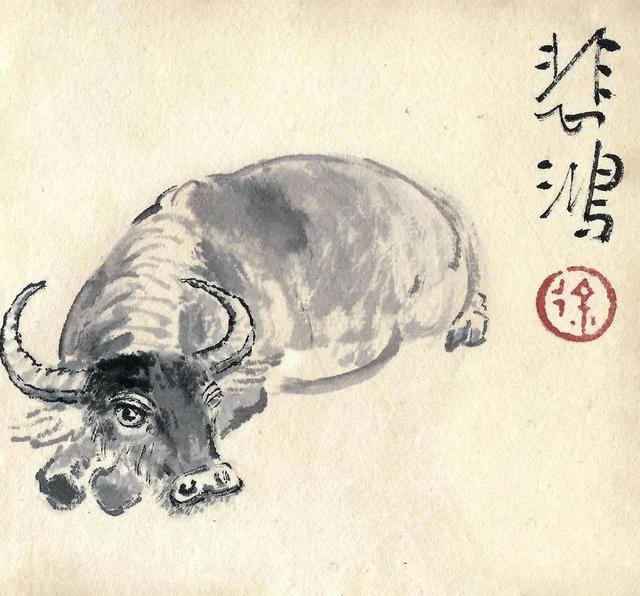 悲鴻
徐